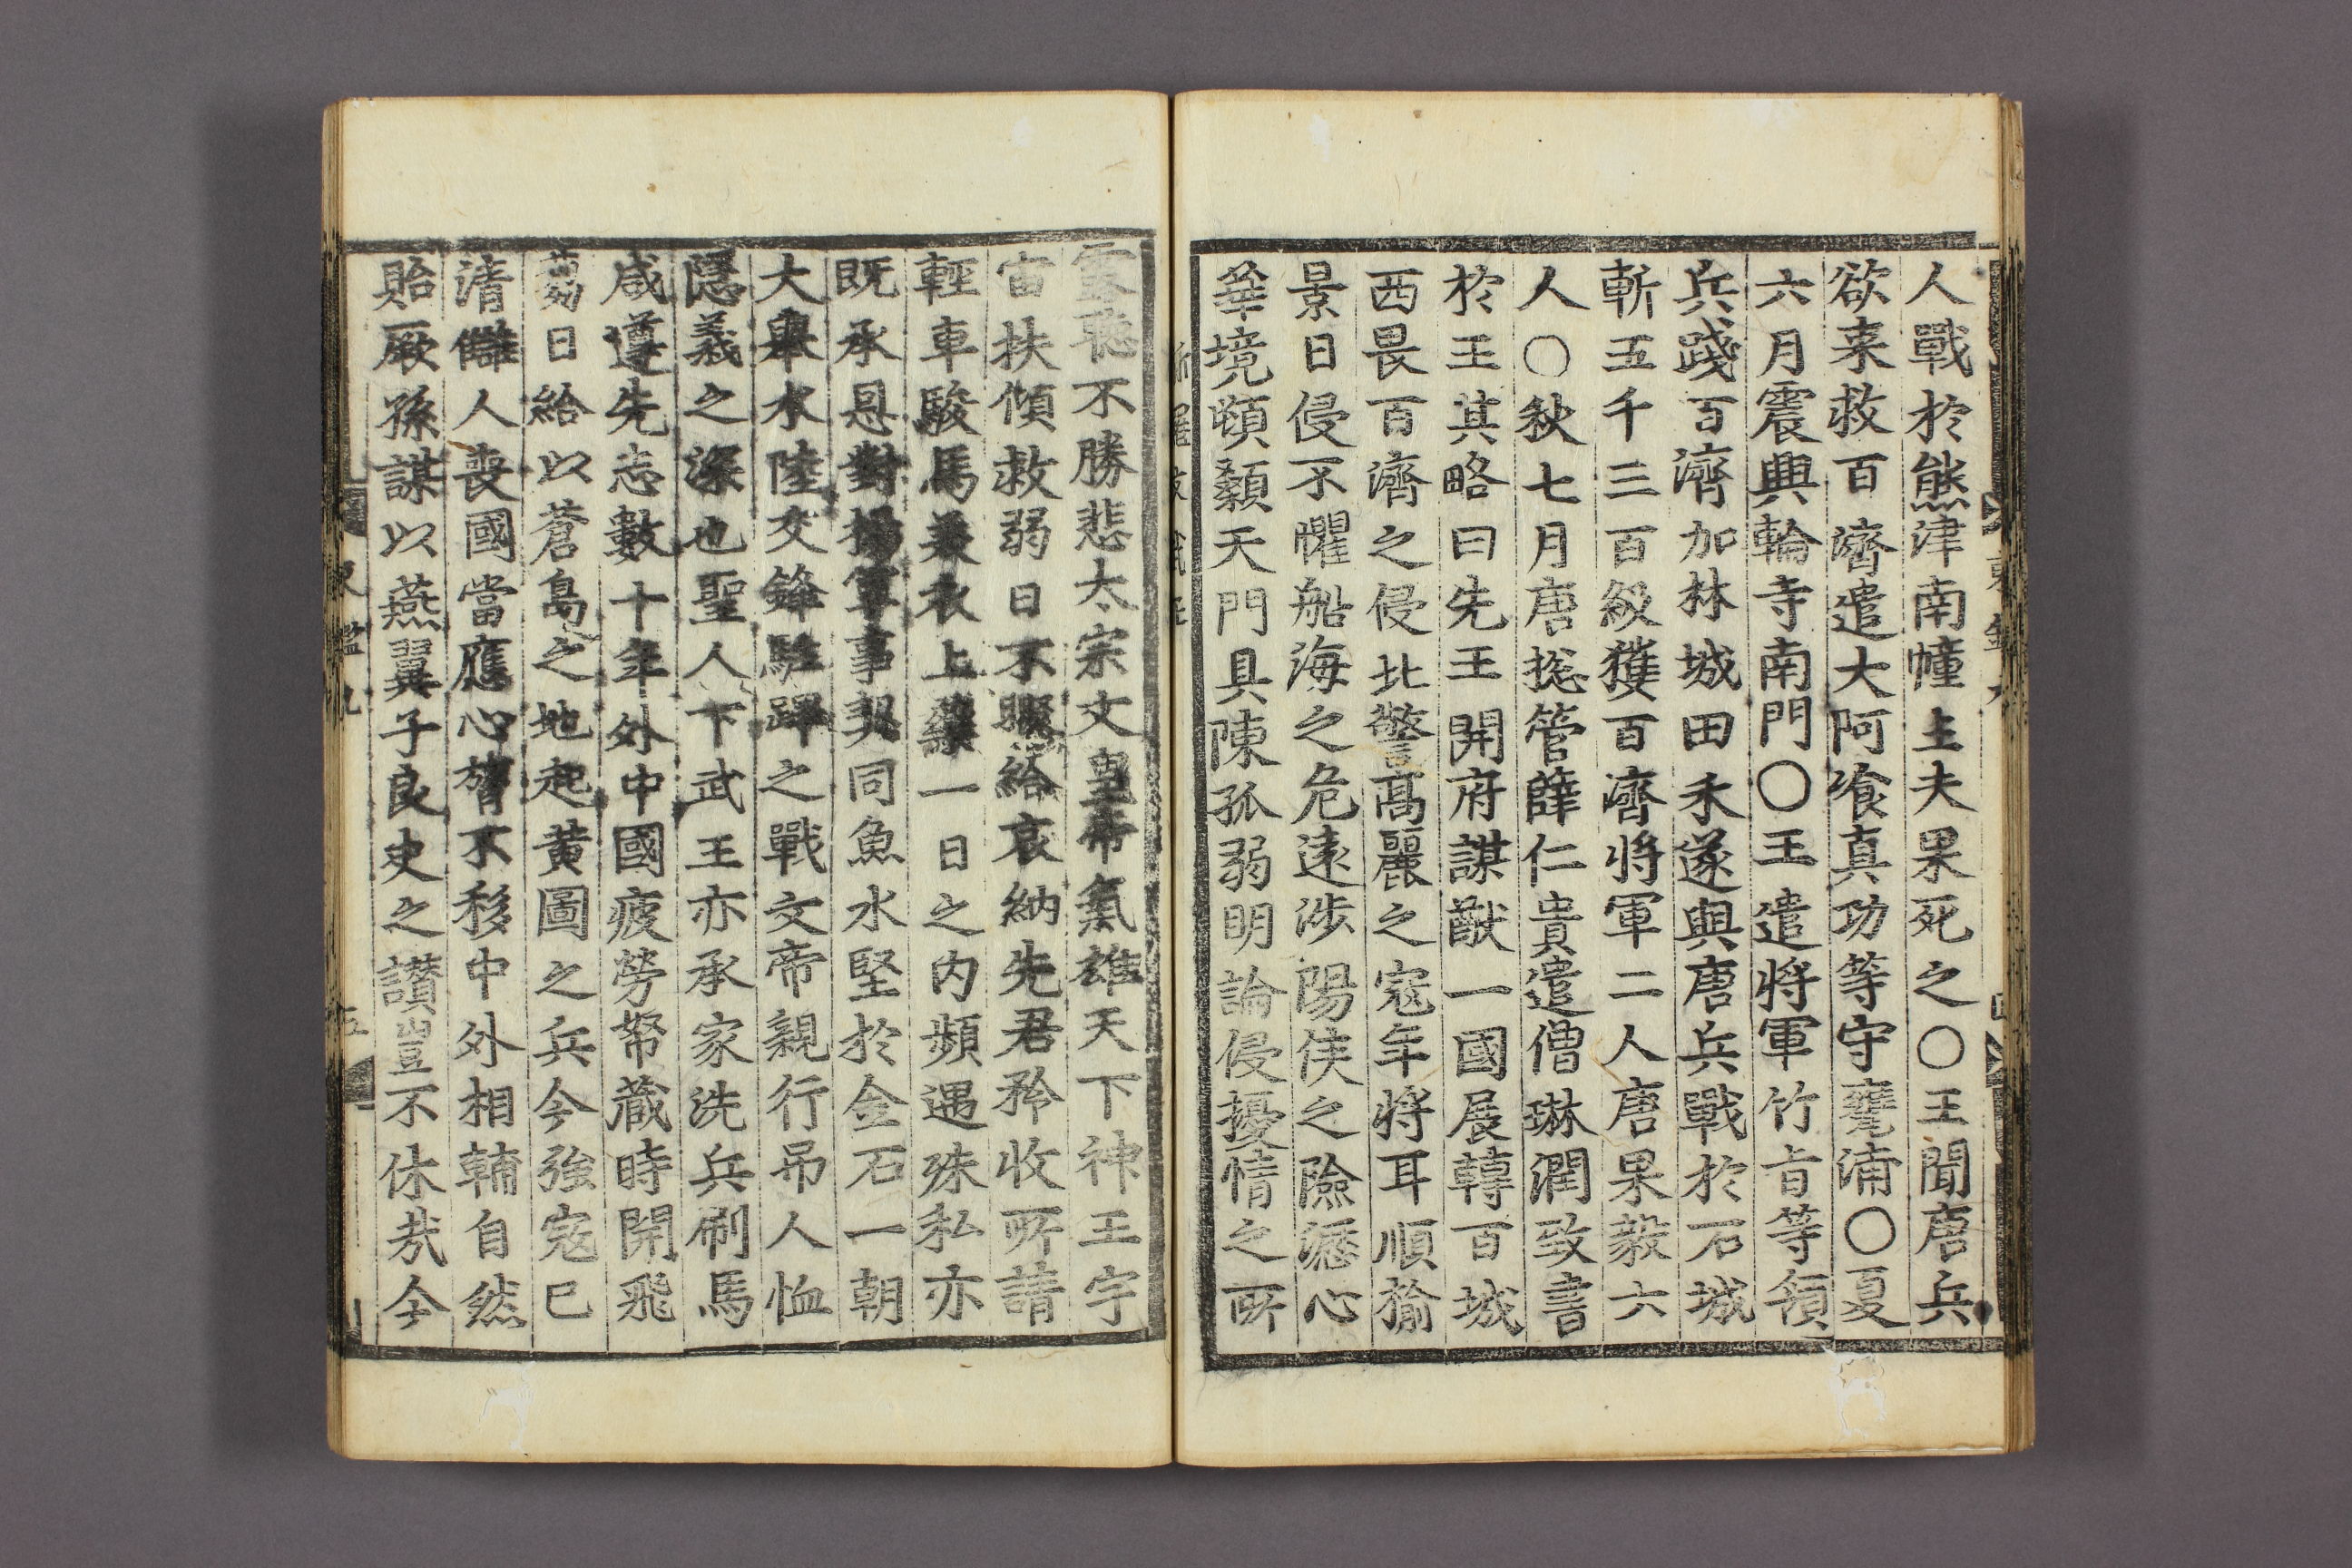 人戰於熊津南幢主夫果死之○王聞唐兵
欲来救百濟遣大阿飡真功等守甕浦○夏
六月震興輪寺南門○王遣將軍竹旨等領
兵踐百濟加林城田禾遂與唐兵戰於石城
斬五千三百級獲百濟將軍二人唐果毅六
人○秋七月唐摠管薛仁貴遣僧琳潤致書
於王其略曰先王開府謀猷一國展轉百城
西畏百濟之侵北警高麗之寇年將耳順揄
景日侵不懼船海之危遠涉陽侯之險瀝心
華境頓顙天門具陳孤弱明論侵擾情之所
露聴不勝悲太宗文皇帝氣雄天下神王宇
宙扶傾救弱日不暇給哀納先君矜收所請
輕車駿馬美衣上藥一日之内頻遇殊私亦
既承恩對揚軍事契同魚水堅於金石一朝
大舉水陸交鋒駐蹕之戰文帝親行吊人恤
隱義之深也聖人下武王亦承家洗兵刷馬
咸遵先志數十年外中國疲勞帑蔵時開飛
蒭日給以蒼島之地起黃圖之兵今強寇已
清讎人喪國當應心膂不移中外相輔自然
貽厥孫謀以燕翼子良史之讃豈不休哉今
東鑑九
五